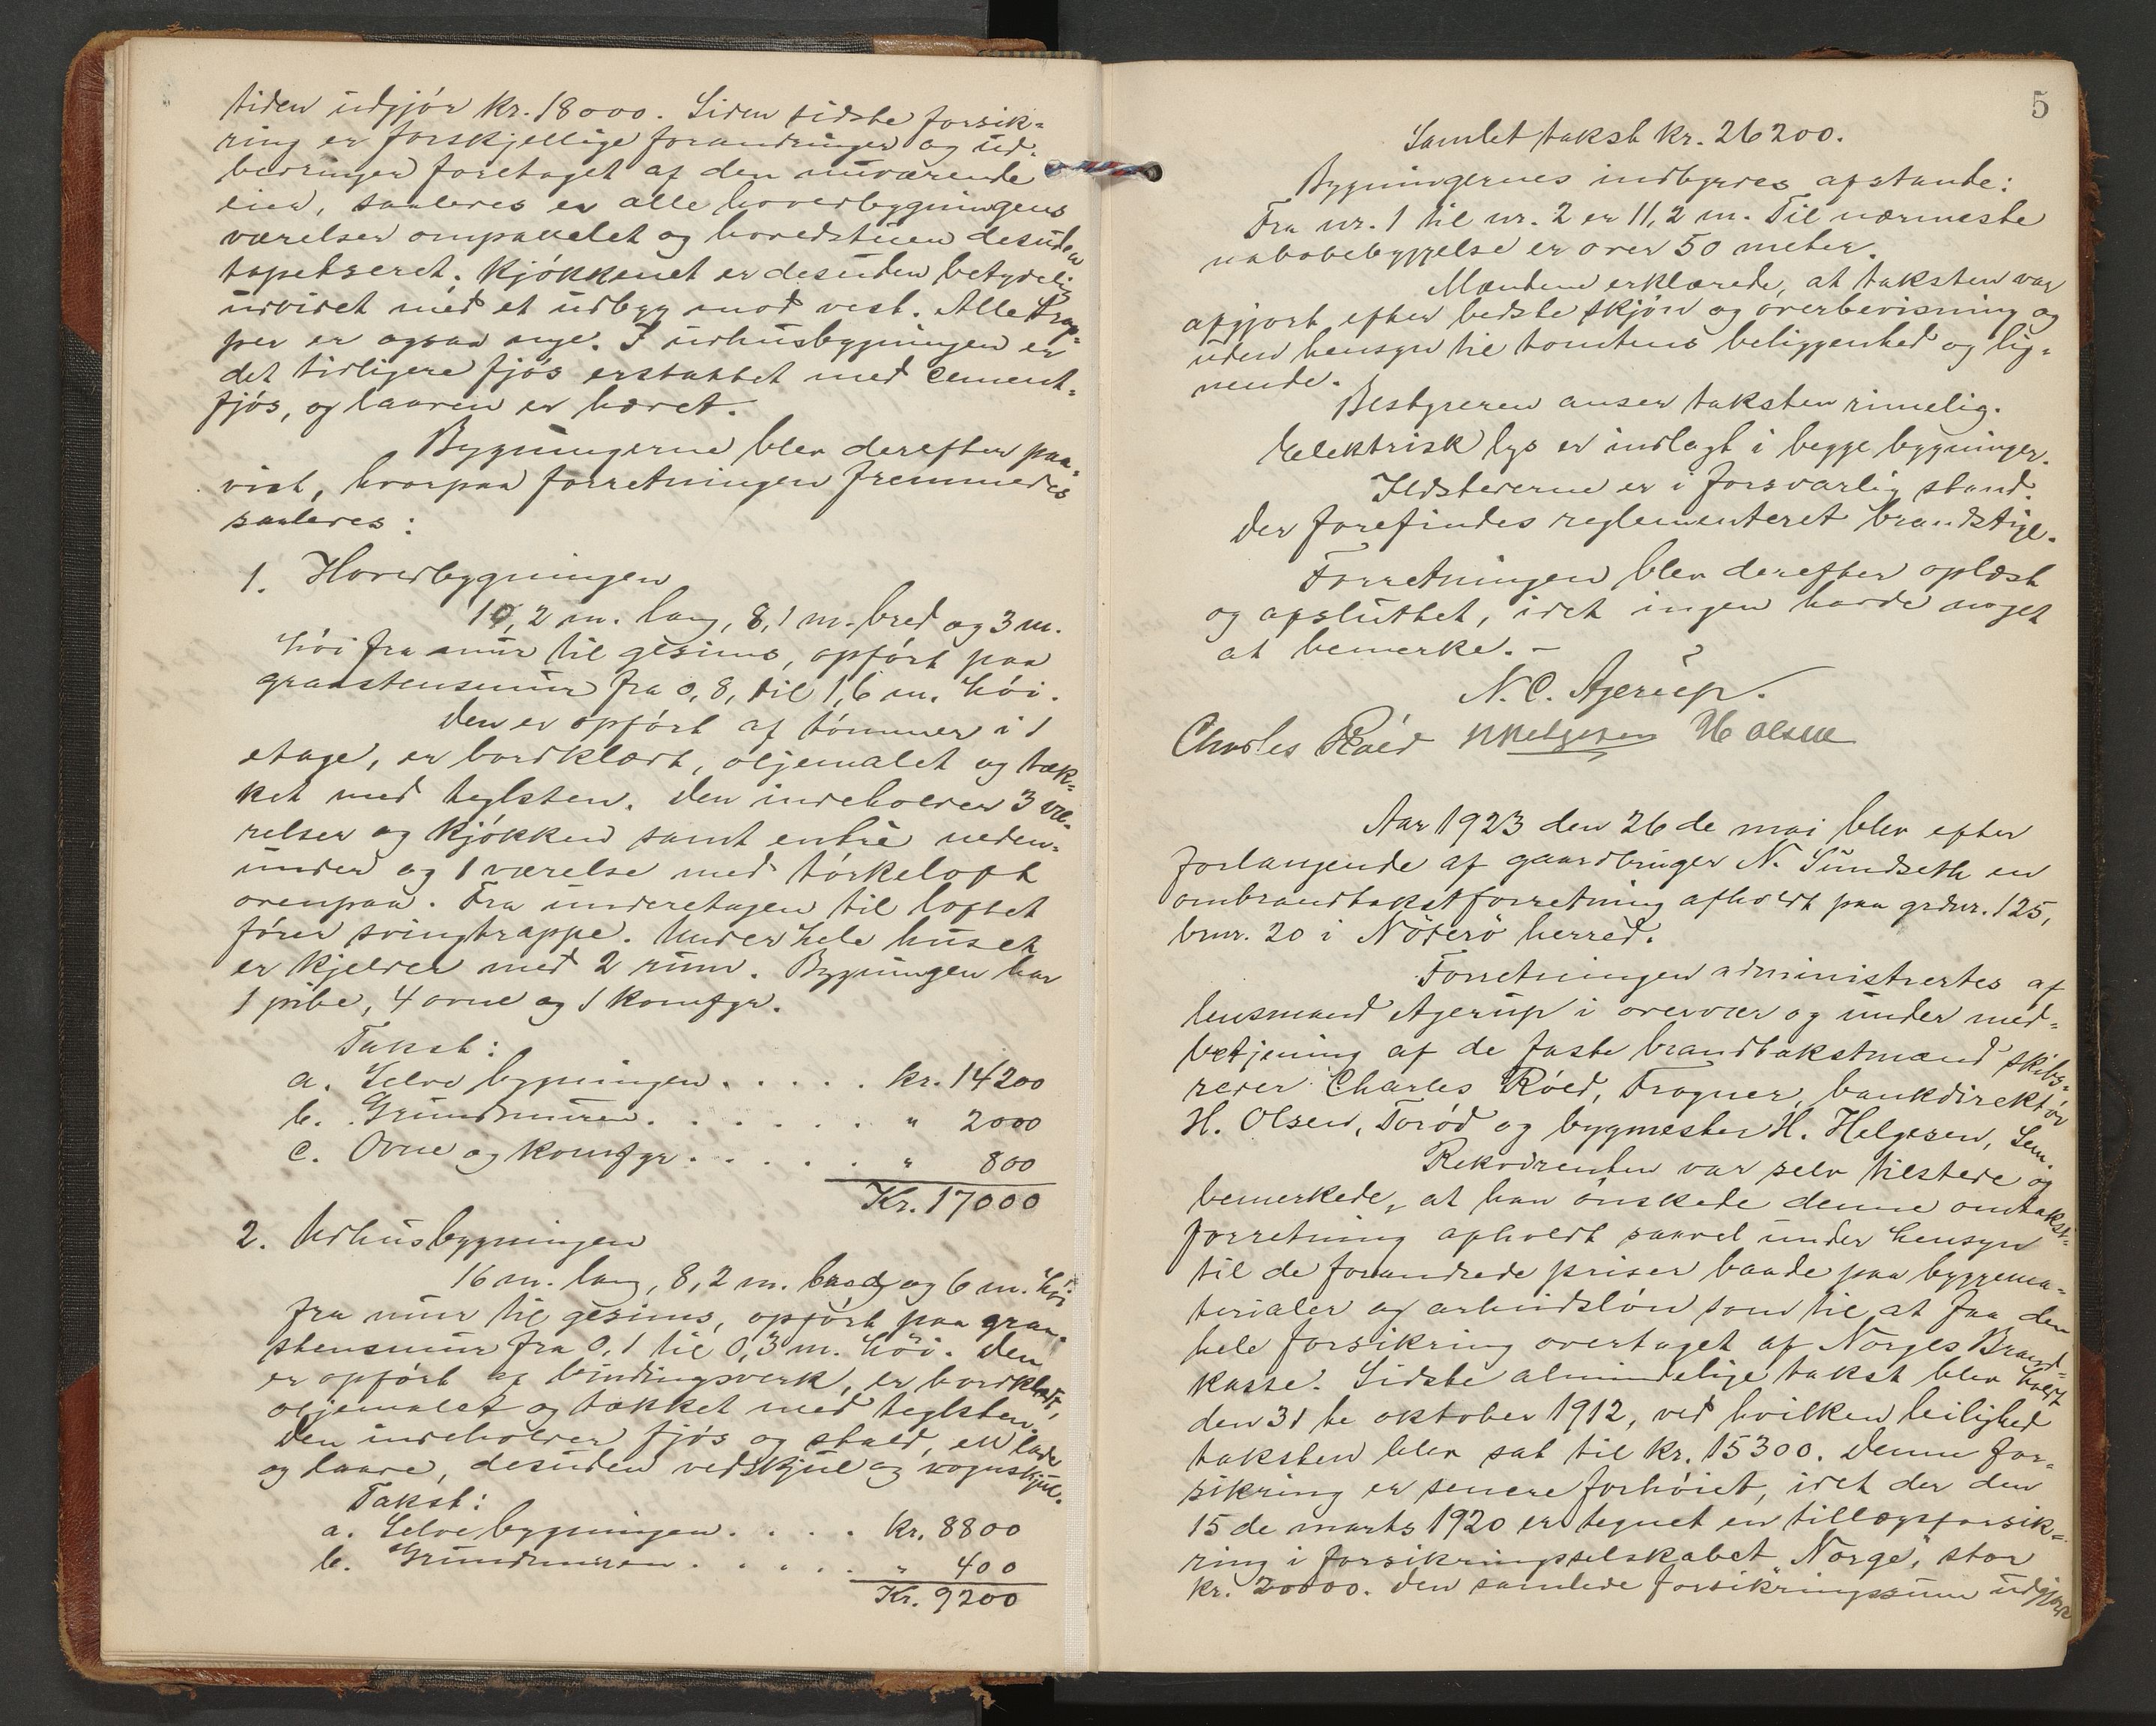 tiden udgjör kr. 18000. Siden sidste forsik=
ring er forskjellige forandringer og ud=
bedringer foretaget af den nuværende
eier, saaledes er alle hovedbygningens
værelser ompanelet og hovedstuen desuden
tapetseret. Kjökkenet er desuden betydelig
udvidet med et udbyg mod vest. Alle trap=
per er ogsaa nye. I udhusbygningen er
det tidligere fjös erstattet med cement=
fjös, og laaven er hævet.
Bygningerne blev derefter paa=
vist, hvorpaa forretningen fremmedes
saaledes:
1. Hovedbygningen
10,2 m. lang, 8,1 m. bred og 3 m.
höi fra mur til gesims, opfört paa
graastensmur fra 0,8, til 1,6 m. höi.
Den er opfört af tömmer i 1
etage, er bordklædt, oljemalet og tæk=
ket med teglsten. Den indeholder 3 væ=
relser og kjökken samt entré neden=
under og 1 værelse med törkeloft
ovenpaa. Fra underetagen til loftet
förer svingtrappe. Under hele huset
er kjelder med 2 rum. Bygningen har
1 pibe, 4 ovne og 1 komfyr.
Takst:
a. Selve bygningen . . . . . kr. 14200
b. Grundmuren . . . . . . " 2000
c. Ovne og komfyr . . . . . " 800
Kr. 17000
2. Udhusbygningen
16 m. lang, 8,2 m. bred og 6 m. höi
fra mur til gesims, opfört paa graa=
stensmur fra 0,1 til 0,3 m. höi. Den
er opfört af bindingsverk, er bordklædt,
oljemalet og tækket med teglsten.
Den indeholder fjös og stald, en lade
og laave, desuden vedskjul og vognskjul.
Takst:
a. Selve bygningen . . . . kr. 8800
b. Grundmuren . . . . . " 400
Kr. 9200
5
Samlet takst kr. 26200.
Bygningernes indbyrdes afstande:
Fra nr. 1 til nr. 2 er 11,2 m. Til nærmeste
nabobebyggelse er over 50 meter.
Mændene erklærede, at taksten var
afgjort efter bedste skjön og overbevisning og
uden hensyn til tomtens beliggenhed og lig=
nende.
Bestyreren anser taksten rimelig.
Elektrisk lys er indlagt i begge bygninger.
Ildstederne er i forsvarlig stand.
Der forefindes reglementeret brandstige.
Forretningen blev derefter oplæst
og afsluttet, idet ingen havde noget
at bemerke. –
N. C. Agerup.
Charles Röed HHelgesen H Olsen
Aar 1923 den 26de mai blev efter
forlangende af gaardbruger N. Sundseth en
ombrandtakstforretning afholdt paa grdnr. 125,
brnr. 20 i Nöterö herred.
Forretningen administrertes af
lensmand Agerup i overvær og under med=
betjening af de faste brandtakstmænd skibs=
reder Charles Röed, Trogner, bankdirektör
H. Olsen, Toröd og bygmester H. Helgesen, Sem.
Rekvirenten var selv tilstede og
bemerkede, at han önskede denne omtakst=
forretning afholdt saavel under hensyn
til de forandrede priser baade paa byggema=
terialer og arbeidslön som til at faa den
hele forsikring overtaget af Norges Brand=
kasse. Sidste almindelige takst blev holdt
den 31te oktober 1912, ved hvilken leilighed
taksten blev sat til kr. 15300. Denne for=
sikring er senere forhöiet, idet der den
15de marts 1920 er tegnet en tillægsforsik=
ring i forsikringsselskabet "Norge", stor
kr. 20000. Den samlede forsikringssum udgjör